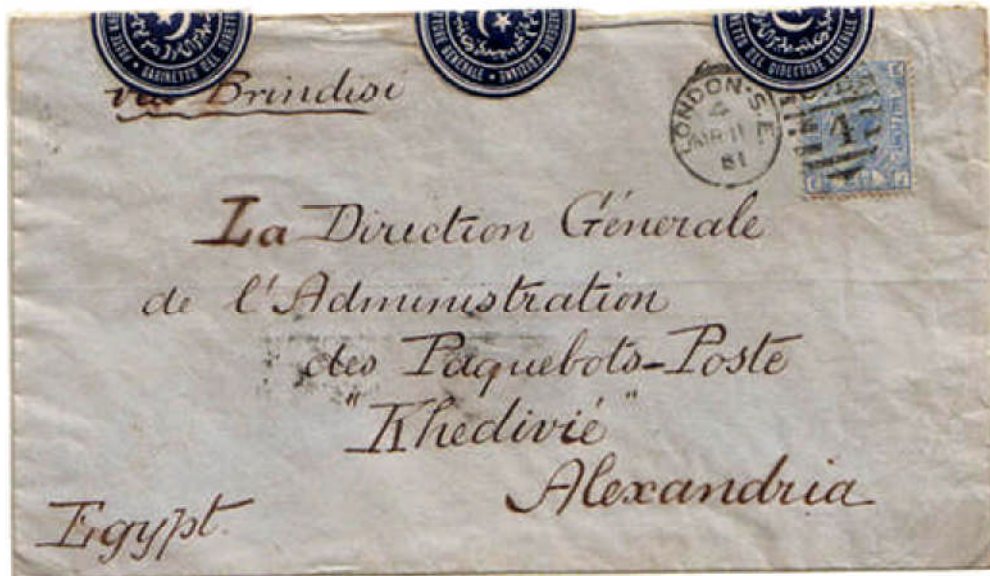 GABINETTO DEL DIRET
TORE GENERALE
NETTO DEL DIRETTORE GENERALE
via Brindisi
LONDON·S.E.
4
MR 11
81
4
La Direction Génerale
de l'Administration
des Paquebots-Poste
"Khedivié"
Alexandria
Egypt.